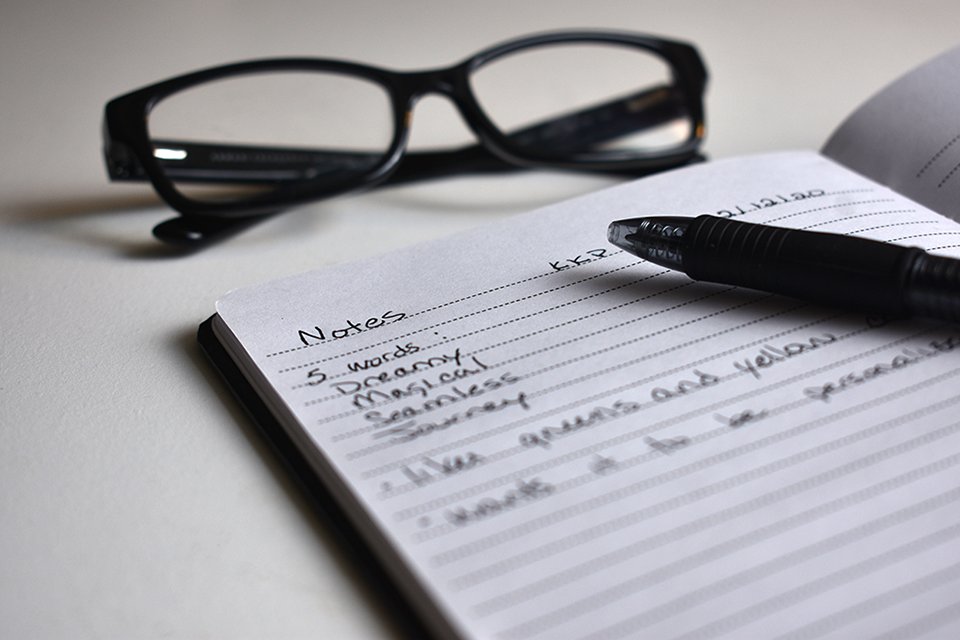 Notes KKP 21.12.20
5 words :
Dreamy
Magical
Seamless
Journey
· likes greens and yellow
· wants it to be personalis